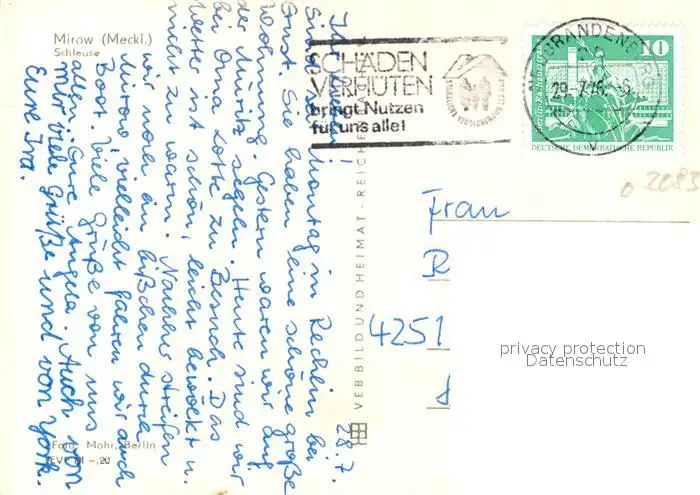 Mirow (Meckl.)
Schleuse
28.7.
Ihr Lieben!
Sind seit Montag in Rechlin bei
Ernst. Sie haben eine schöne große
Wohnung. Gestern waren wir auf
der Müritz segeln. Heute sind wir
bei Oma Lotte zu Besuch. Das
Wetter ist schön, leicht bewölkt u.
nicht zu warm. Nachher streifen
wir noch ein bißchen durch
Mirow, vielleicht fahren wir auch
Boot. Viele Grüße von uns
allen Eure Angela. Auch von
mir viele Grüße und von York.
Eure Ira.
Foto Mohr, Berlin
EVP M -,20
VEB BILD UND HEIMAT · REICHE
SCHÄDEN
VERHÜTEN
bringt Nutzen
für uns alle!
BRANDENB
29.-7.76
10
Berlin-Rathausstraße
DEUTSCHE DEMOKRATISCHE REPUBLIK
0 2083
Frau
R
4251
privacy protection
Datenschutz